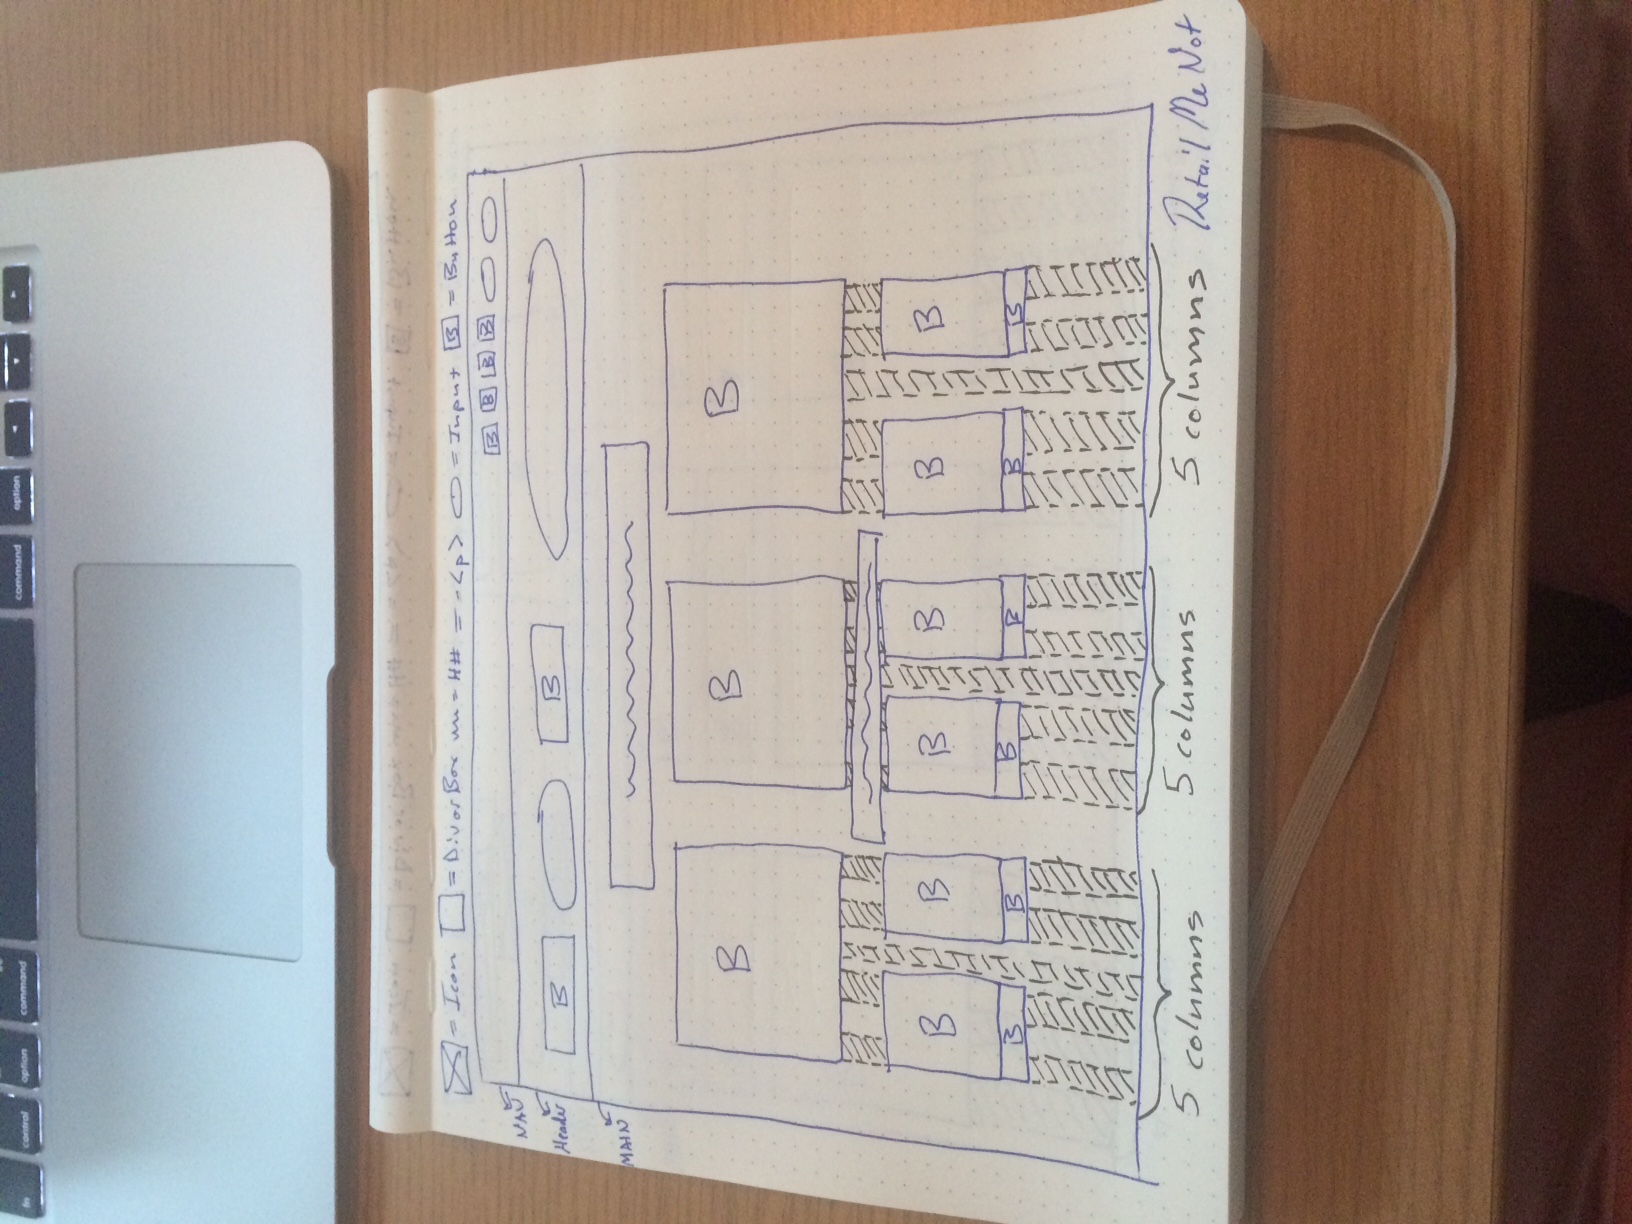 fn control option command command option
= Icon = Div or Box = H# = <p> = Input B = Button
B B B B
NAV
Header B B
MAIN
B B B
B B B B B B
B B B B B B
5 columns 5 columns 5 columns Retail Me Not